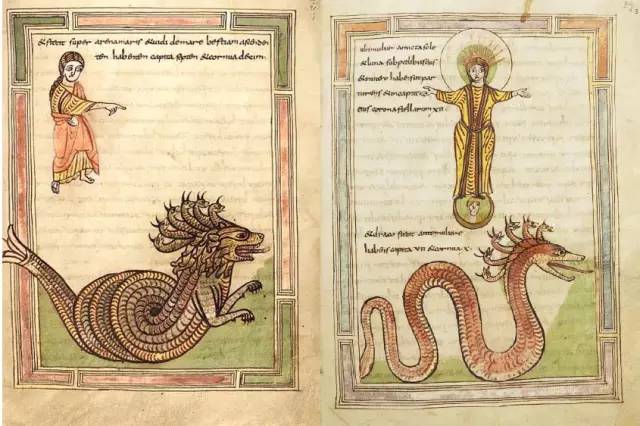 & stetit super arena maris & uidi de mare bestiam ascenden
tem habentem capita septem & cornua decem.
mulier amicta sole
& luna sub pedibus eius
turiens & in capite
eius corona stellarum xii
& draco stetit ante muliere
habens capita VII & cornua X.